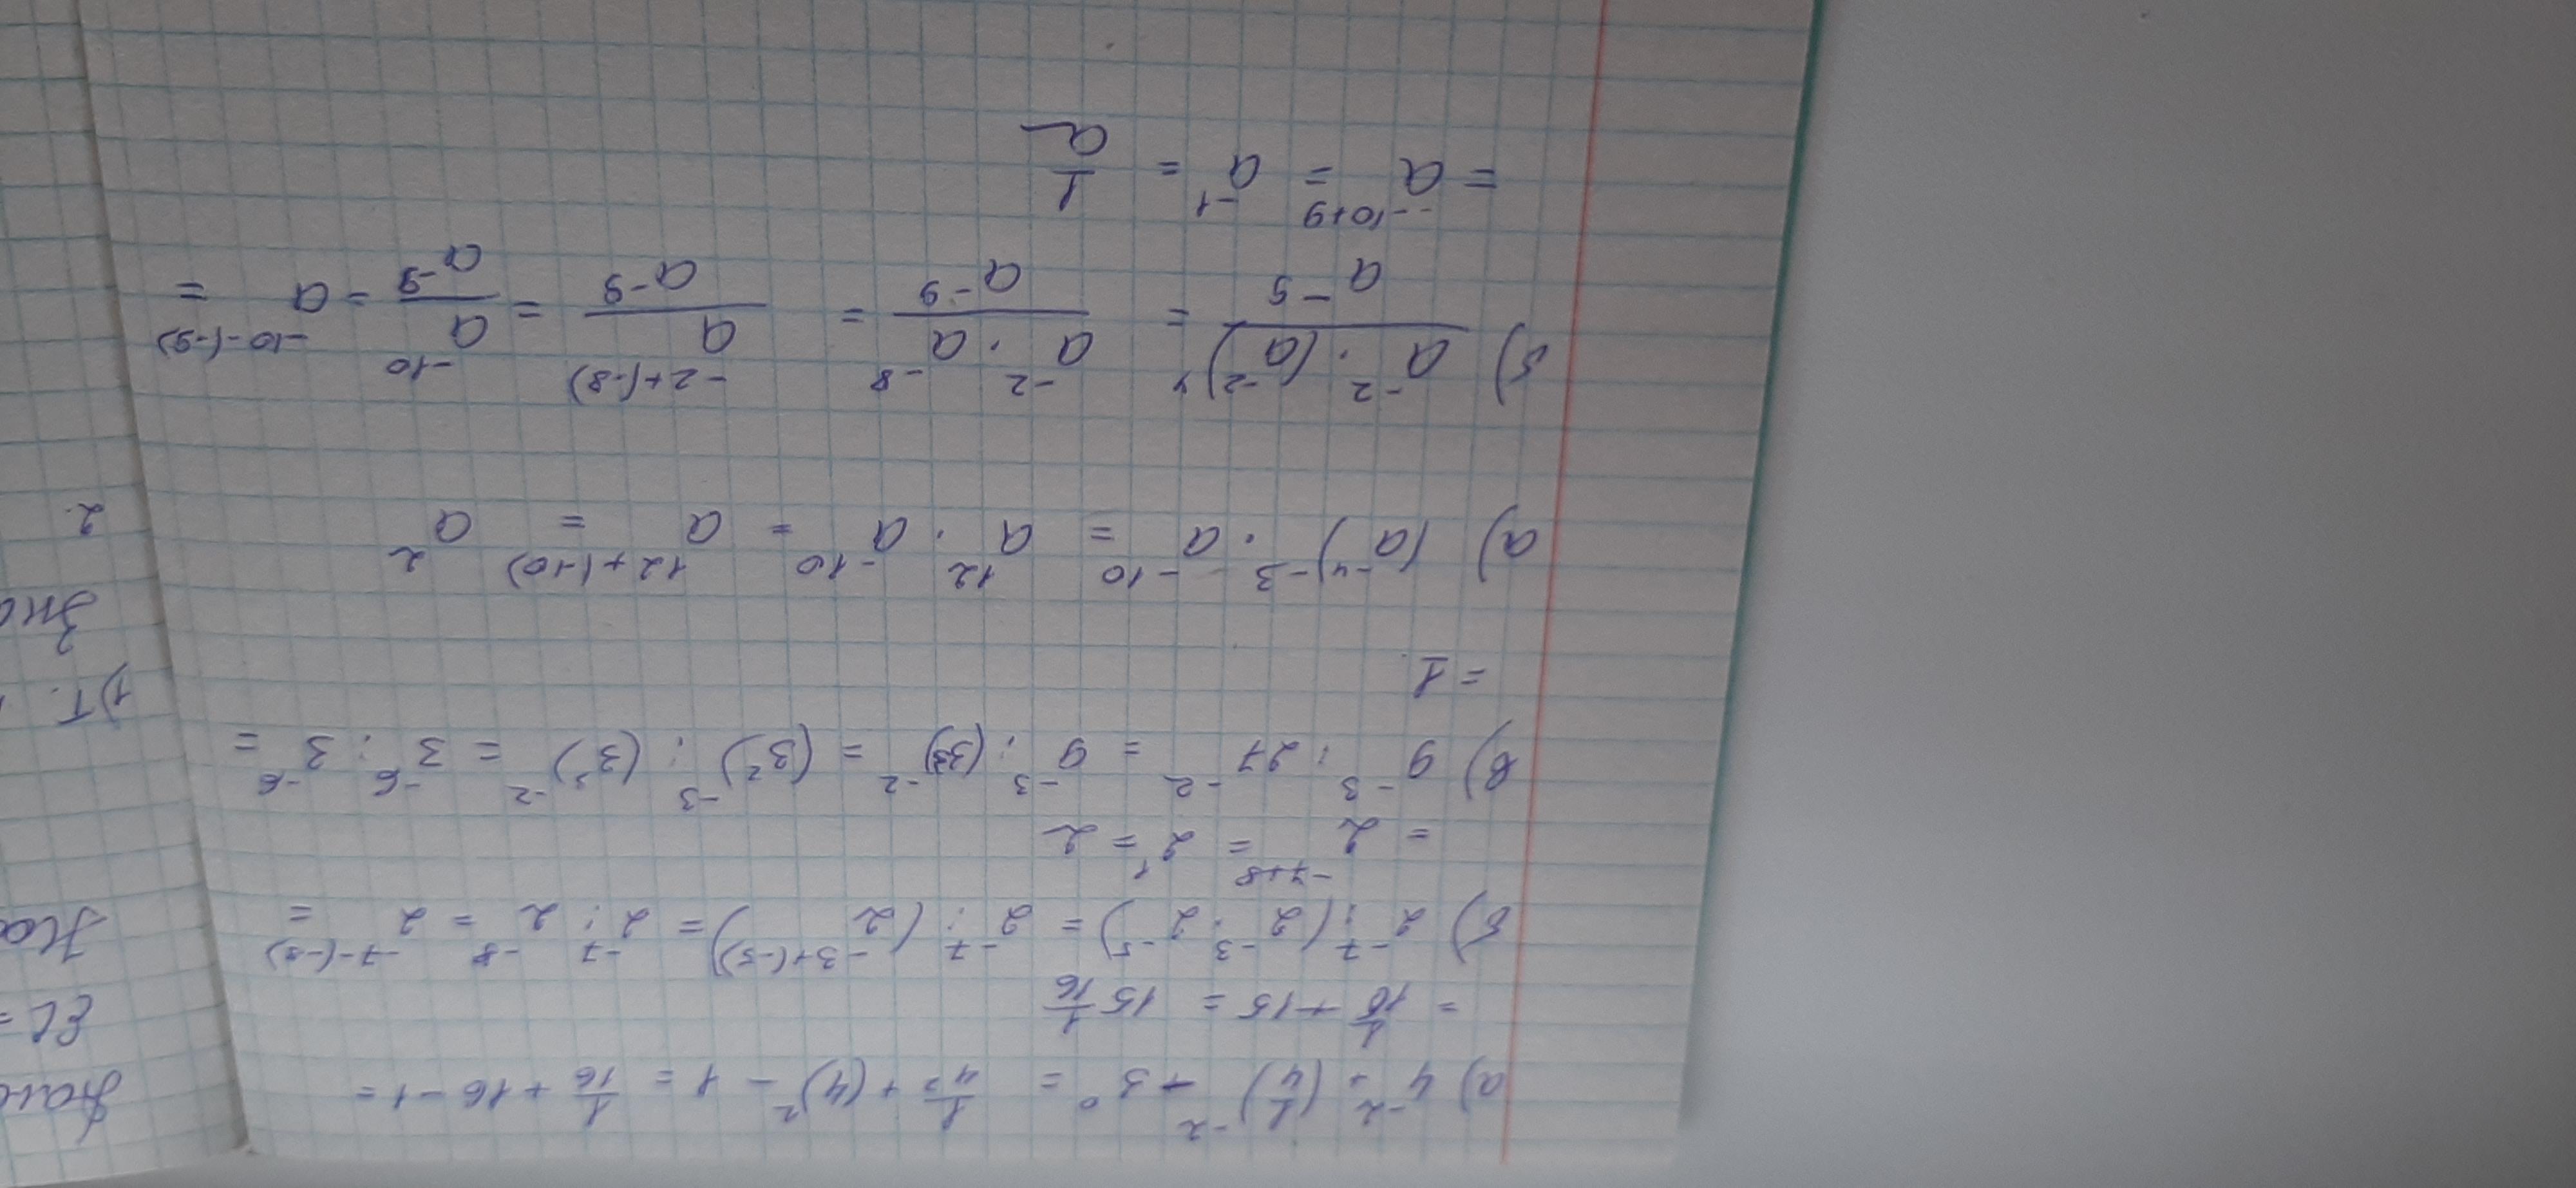 а) 4⁻² + (1/4)⁻² - 3⁰ = 1/4² + (4)² - 1 = 1/16 + 16 - 1 =
= 1/16 + 15 = 15 1/16
б) 2⁻⁷ : (2⁻³ · 2⁻⁵) = 2⁻⁷ : (2⁻³⁺⁽⁻⁵⁾) = 2⁻⁷ : 2⁻⁸ = 2⁻⁷⁻⁽⁻⁸⁾ =
= 2⁻⁷⁺⁸ = 2¹ = 2
в) 9⁻³ : 27⁻² = 9⁻³ : (3³)⁻² = (3²)⁻³ : (3³)⁻² = 3⁻⁶ : 3⁻⁶ =
= 1.
а) (a⁻⁴)⁻³ · a⁻¹⁰ = a¹² · a⁻¹⁰ = a¹²⁺⁽⁻¹⁰⁾ = a²
б) a⁻² · (a⁻²)⁴ / a⁻⁹ = a⁻² · a⁻⁸ / a⁻⁹ = a⁻²⁺⁽⁻⁸⁾ / a⁻⁹ = a⁻¹⁰ / a⁻⁹ = a⁻¹⁰⁻⁽⁻⁹⁾ =
= a⁻¹⁰⁺⁹ = a⁻¹ = 1/a
EC =
1) Т.
2.